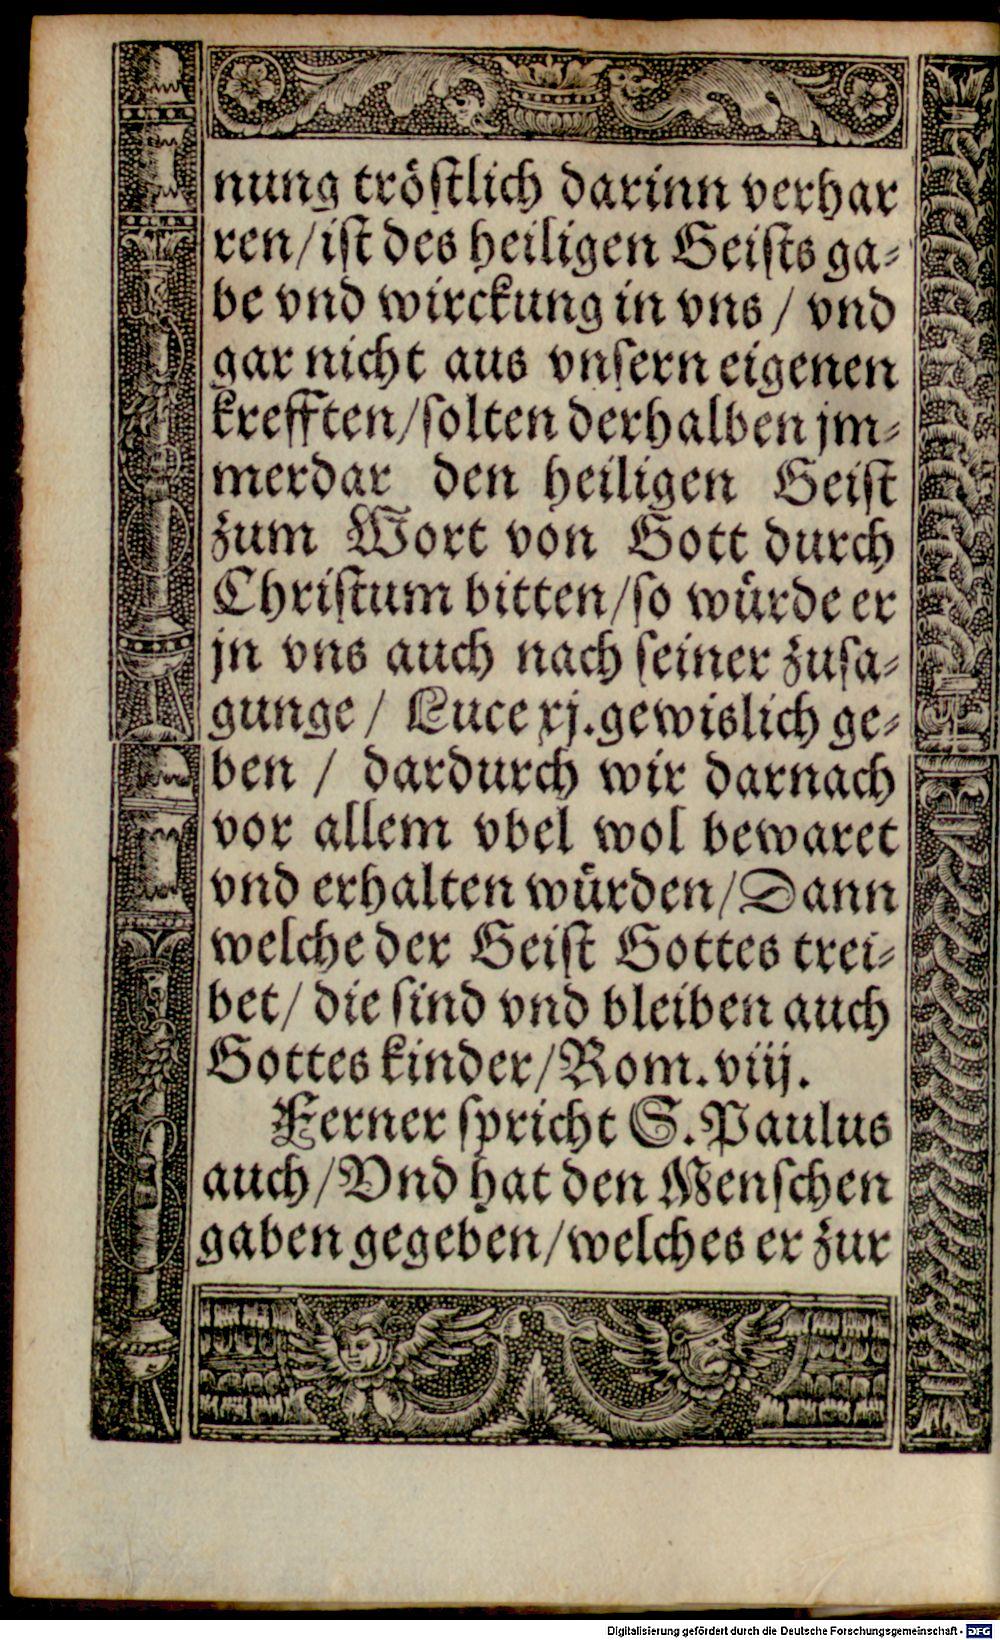 nung tröſtlich darinn verhar
ren/iſt des heiligen Geiſts ga⸗
be vnd wirckung in vns / vnd
gar nicht aus vnſern eigenen
krefften/ſolten derhalben jm⸗
merdar den heiligen Geiſt
zum Wort von Gott durch
Chriſtum bitten/ſo würde er
jn vns auch nach ſeiner zuſa⸗
gunge / Luce xj.gewislich ge⸗
ben / dardurch wir darnach
vor allem vbel wol bewaret
vnd erhalten würden/Dann
welche der Geiſt Gottes trei⸗
bet/ die ſind vnd bleiben auch
Gottes kinder/Rom.viij.
Ferner ſpricht S.Paulus
auch/Vnd hat den Menſchen
gaben gegeben/welches er zur
Digitalisierung gefördert durch die Deutsche Forschungsgemeinschaft - DFG